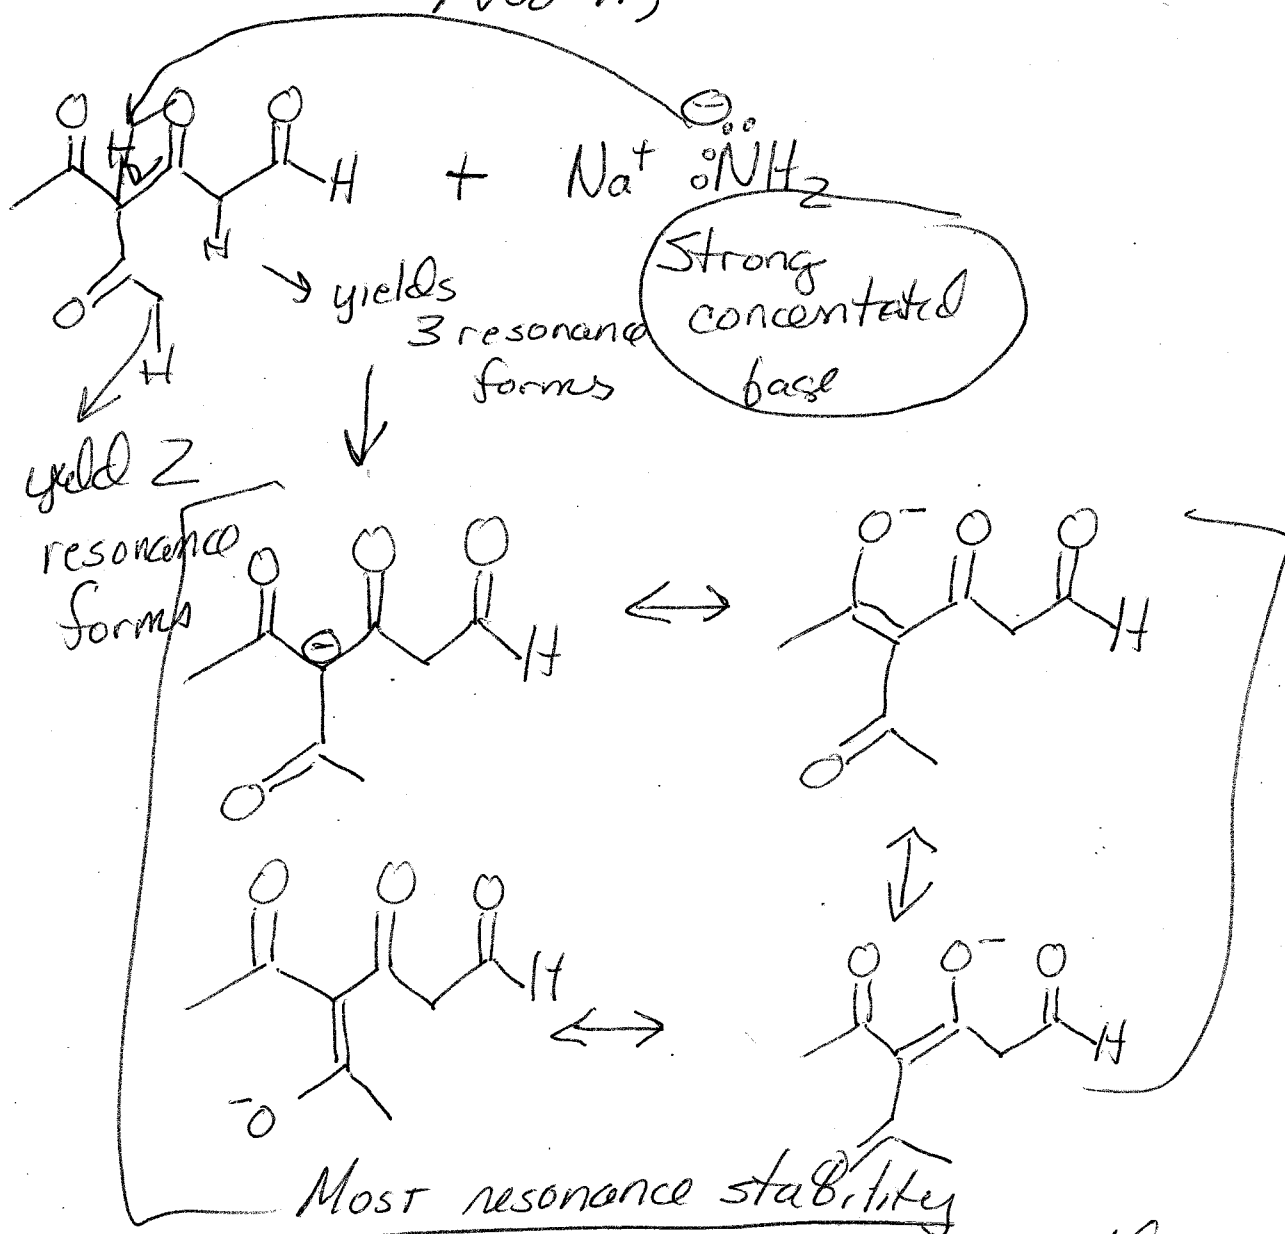 O O O
H
H
+ Na⁺ ⊖ :N̈H₂
O
H
H
Strong
concentrated
base
→ yields
3 resonance
forms
yield 2
resonance
forms
O O O
⊖
H
O
O⁻ O O
H
O
O O O
H
⁻O
O O⁻ O
H
O
Most resonance stability